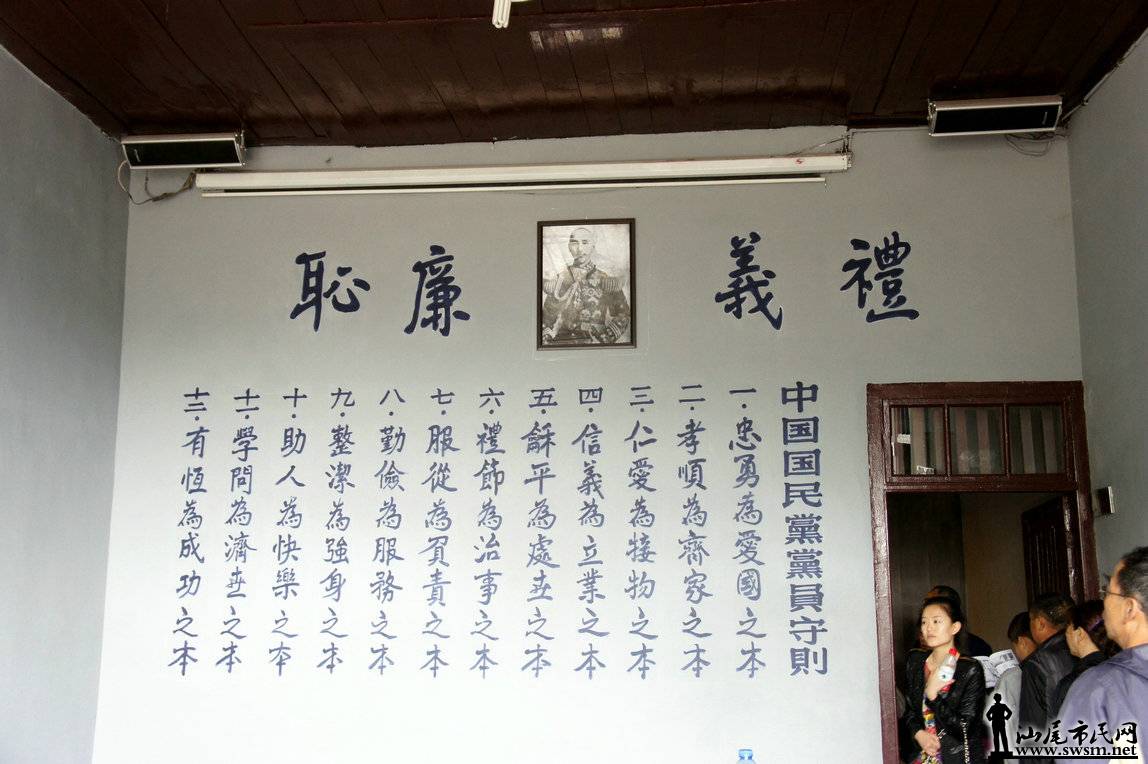 禮義廉恥
中国国民黨黨員守則
一·忠勇為愛國之本
二·孝順為齊家之本
三·仁愛為接物之本
四·信義為立業之本
五·龢平為處世之本
六·禮節為治事之本
七·服從為負責之本
八·勤儉為服務之本
九·整潔為強身之本
十·助人為快樂之本
十一·學問為濟世之本
十二·有恆為成功之本
汕尾市民网
www.swsm.net